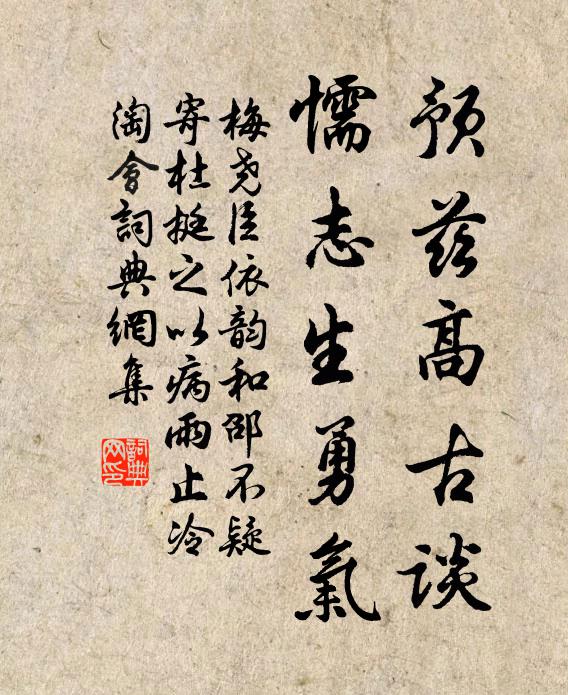 預茲高古談
懦志生勇氣
梅堯臣依韵和邵不疑
寄杜挺之以病雨止冷
淘會詞典網集
詞典
网印